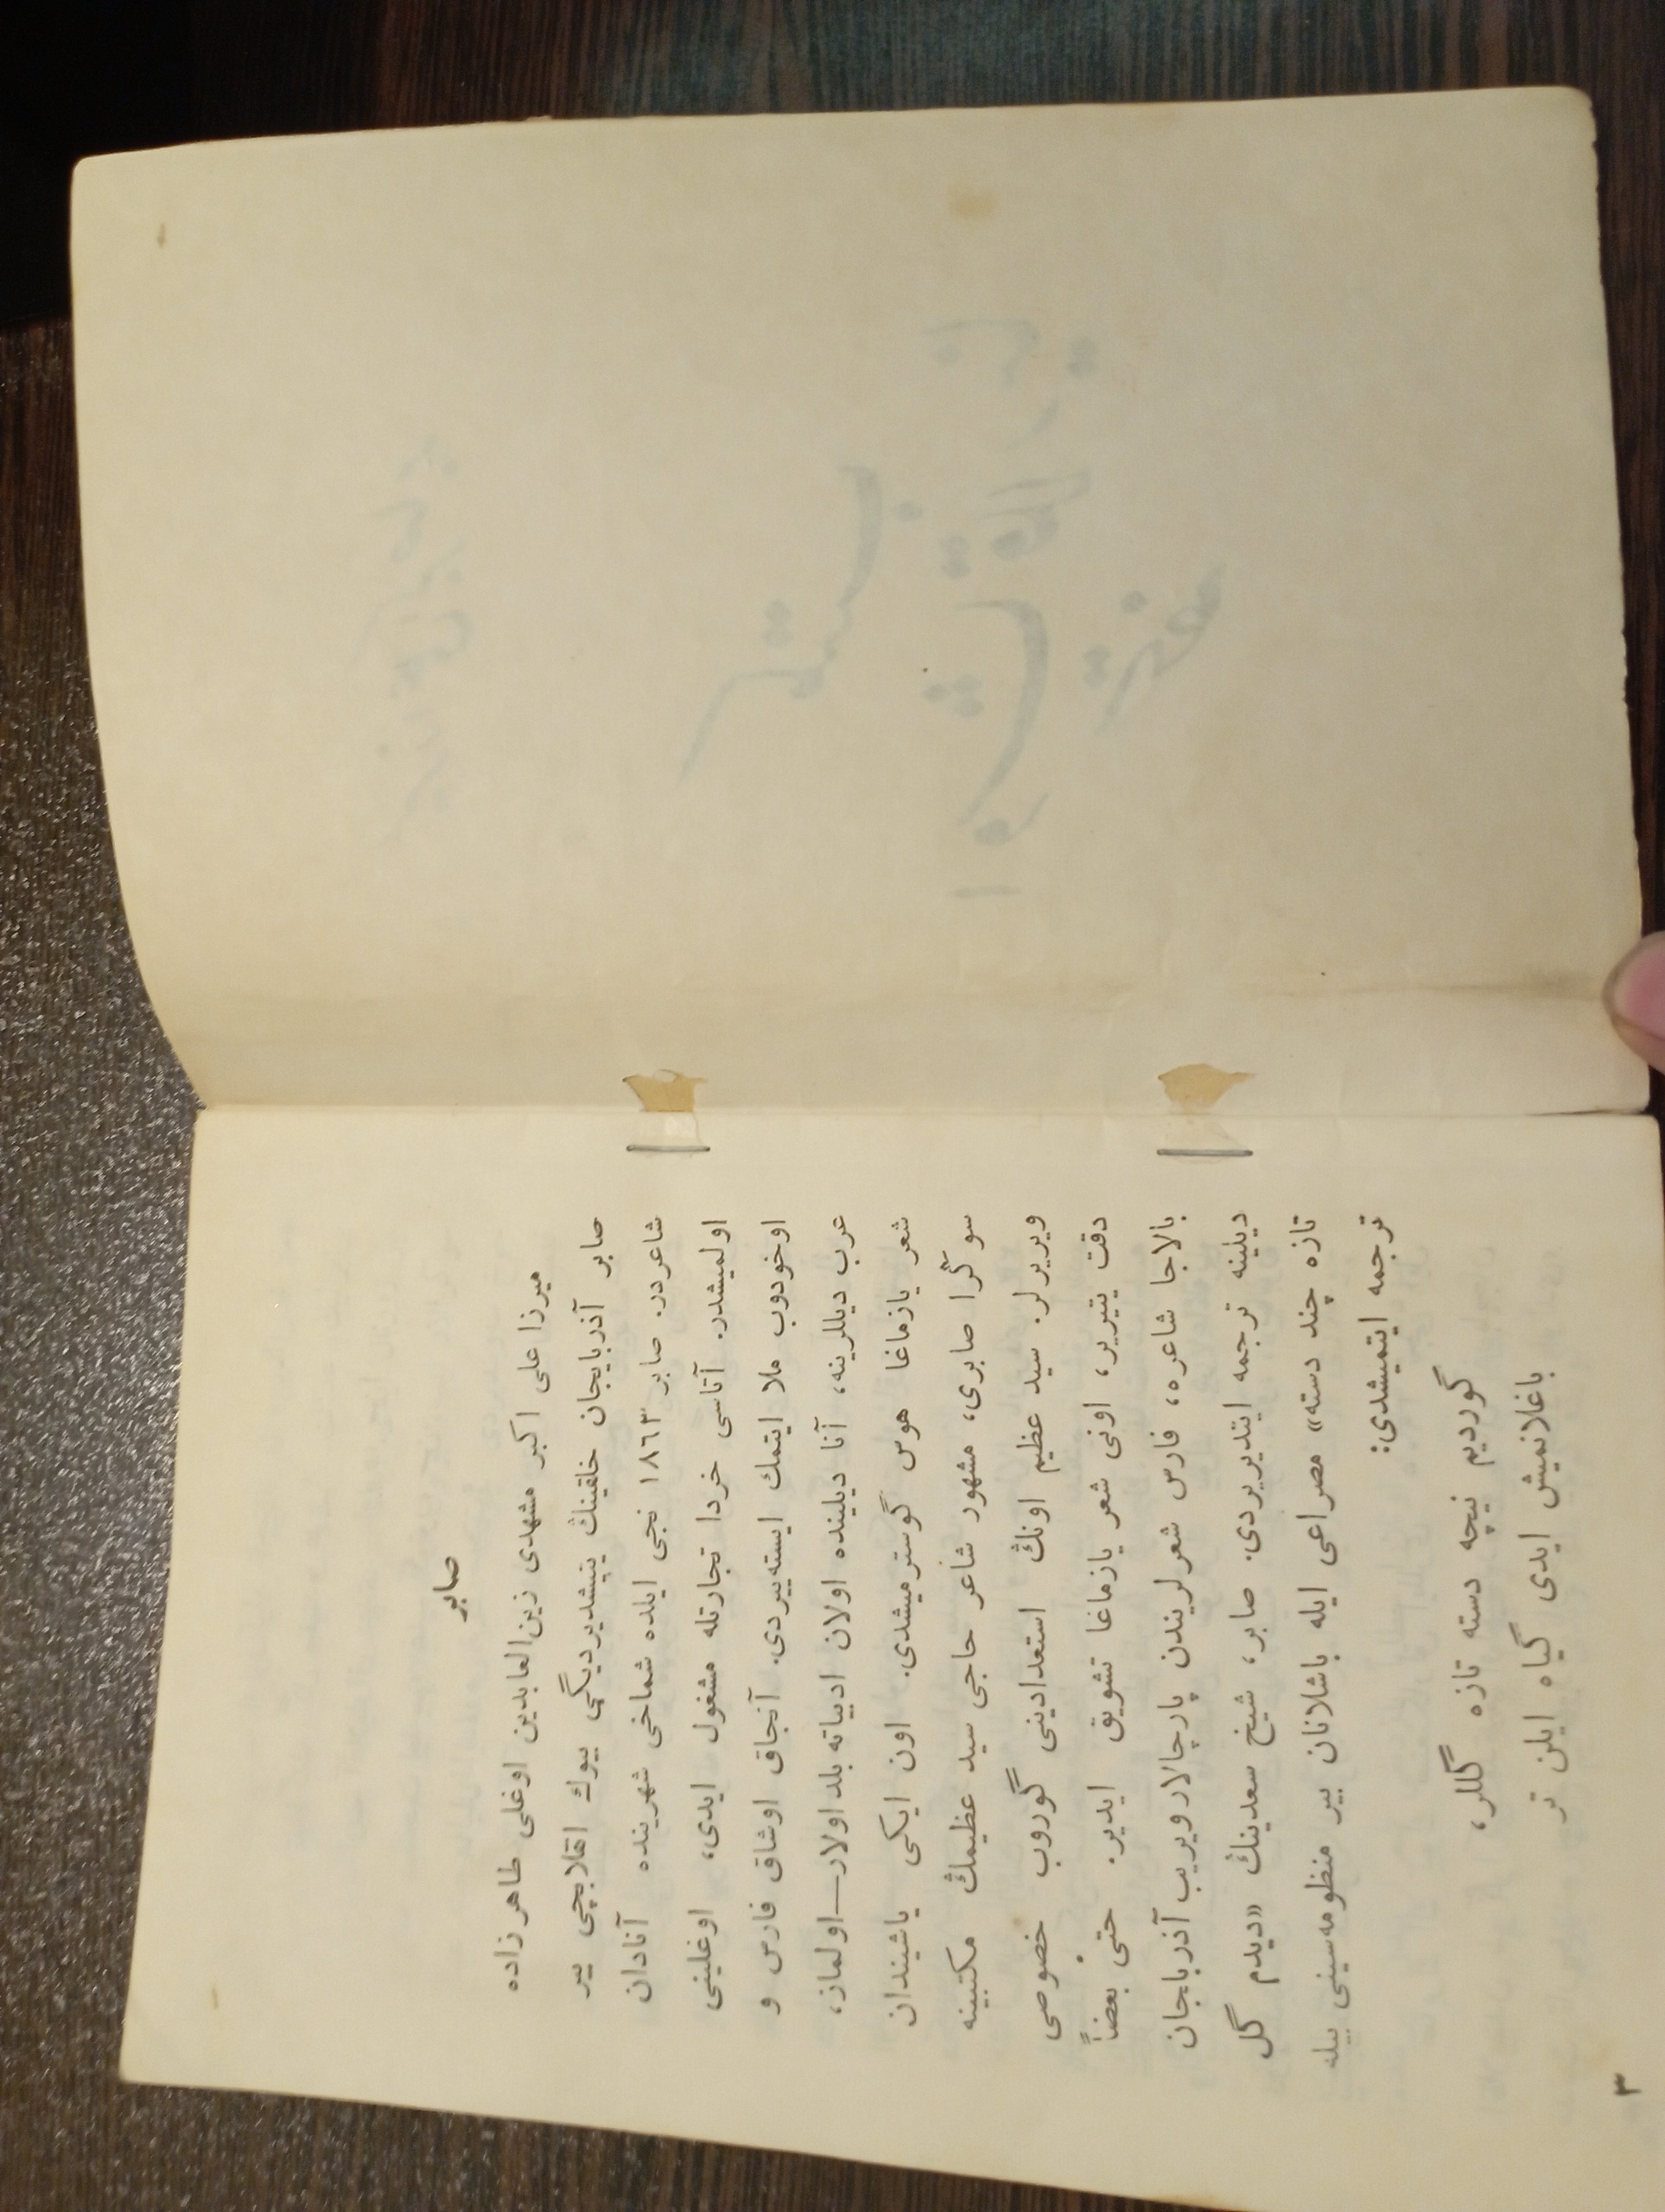 صابر
میرزا علی اکبر مشهدی زین‌العابدین اوغلی طاهرزاده
صابر آذربایجان خلقینڭ یتیشدیردیگی بیوك انقلابچی بیر
شاعردر. صابر ١٨٦٣ نجی ایلده شماخی شهرینده آنادان
اولمیشدر. آتاسی خردا تجارتله مشغول ایدی، اوغلینی
اوخودوب ملا ایتمك ایسته‌ییردی. آنجاق اوشاق فارس و
عرب دیللرینه، آنا دیلینده اولان ادبیاته بلد اولار—اولماز،
شعر یازماغا هوس گوسترمیشدی. اون ایکی یاشیندان
سوڭرا صابری، مشهور شاعر حاجی سید عظیمڭ مکتبینه
ویریرلر. سید عظیم اونڭ استعدادینی گوروب خصوصی
دقت یتیریر، اونی شعر یازماغا تشویق ایدیر. حتی بعضاً
بالاجا شاعره، فارس شعرلریندن پارچالار ویریب آذربایجان
دیلینه ترجمه ایتدیریردی. صابر، شیخ سعدینڭ «دیدم گل
تازه چند دسته» مصراعی ایله باشلانان بیر منظومه‌سینی بیله
ترجمه ایتمیشدی:
گوردیم نیچه دسته تازه گللر،
باغلانمیش ایدی گیاه ایلن تر
٣